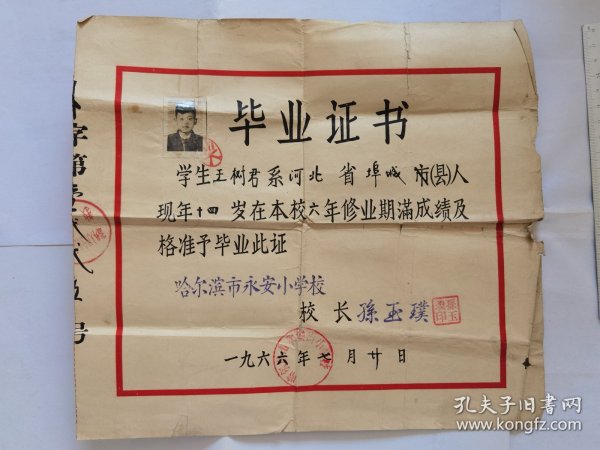 毕业证书
学生王树君系河北省埠城市(县)人
现年十四岁在本校六年修业期滿成绩及
格准予毕业此证
哈尔滨市永安小学校
校长孫玉璞
一九六六年七月廿日
字第
号
孔夫子旧書网
www.kongfz.com